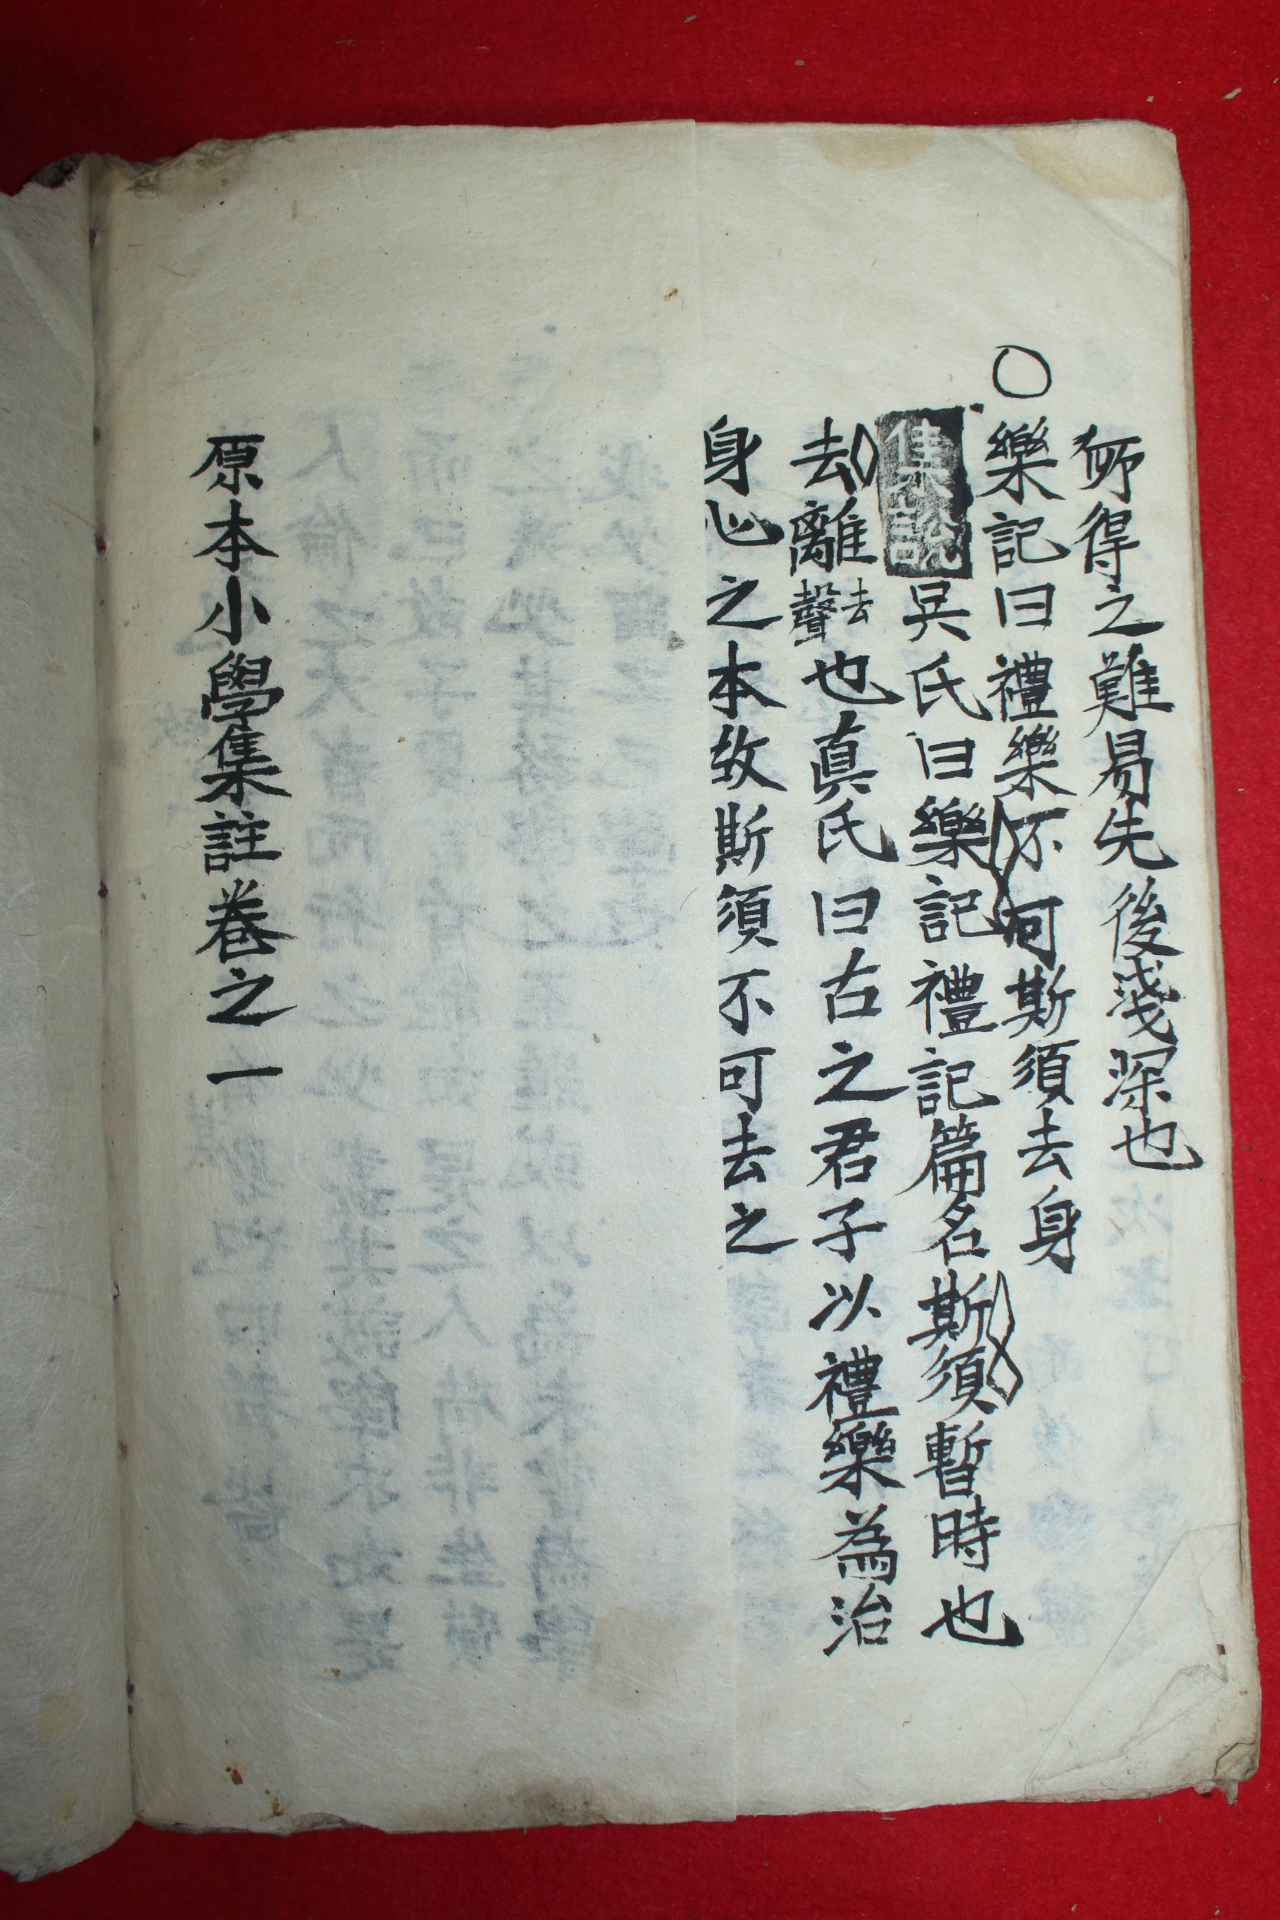 所得之難易先後淺深也
○樂記曰禮樂不可斯須去身
集說吳氏曰樂記禮記篇名斯須暫時也
去離去聲也眞氏曰古之君子以禮樂為治
身心之本故斯須不可去之
原本小學集註卷之一